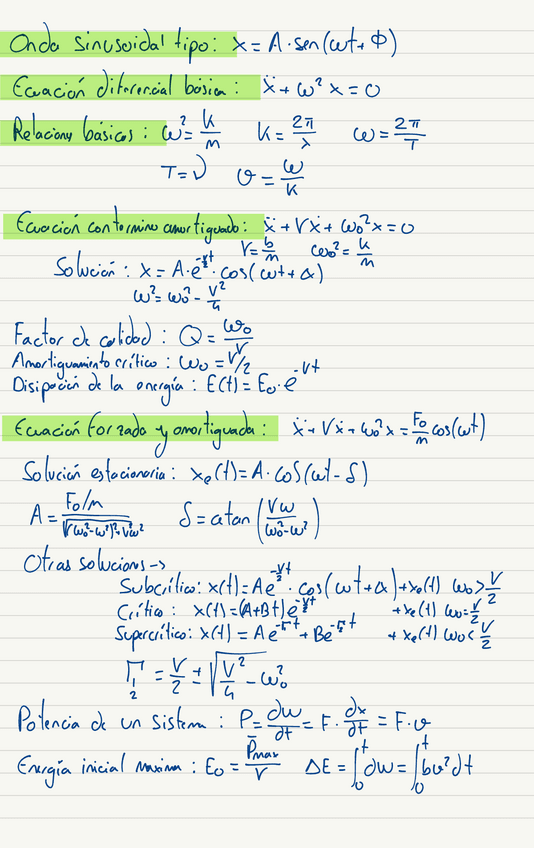 Onda sinusoidal tipo: x = A·sen(ωt + Φ)
Ecuación diferencial básica: ẍ + ω² x = 0
Relaciones básicas: ω² = k/m K = 2π/λ ω = 2π/T
T = ν v = ω/k
Ecuación con termino amortiguado: ẍ + γẋ + ω₀²x = 0
γ = b/m ω₀² = k/m
Solución: x = A·e^(-γ/2 t)·cos(ωt + α)
ω² = ω₀² - γ²/4
Factor de calidad: Q = ω₀/γ
Amortiguamiento crítico: ω₀ = γ/2
Disipación de la energía: E(t) = E₀·e^(-γt)
Ecuación forzada y amortiguada: ẍ + γẋ + ω₀²x = F₀/m cos(ωt)
Solución estacionaria: xₑ(t) = A·cos(ωt - δ)
A = (F₀/m)/√((ω₀²-ω²)²+γ²ω²) δ = atan(γω/(ω₀²-ω²))
Otras soluciones ->
Subcrítico: x(t) = Ae^(-γ/2 t)·cos(ωt + α) + xₑ(t) ω₀ > γ/2
Crítico: x(t) = (A+Bt)e^(-γ/2 t) + xₑ(t) ω₀ = γ/2
Supercrítico: x(t) = Ae^(-Γ₁t) + Be^(-Γ₂t) + xₑ(t) ω₀ < γ/2
Γ₁,₂ = γ/2 ± √(γ²/4 - ω₀²)
Potencia de un sistema: P = dw/dt = F·dx/dt = F·v
Energía inicial maxima: E₀ = P̄max/γ ΔE = ∫₀ᵗ dw = ∫₀ᵗ bv² dt